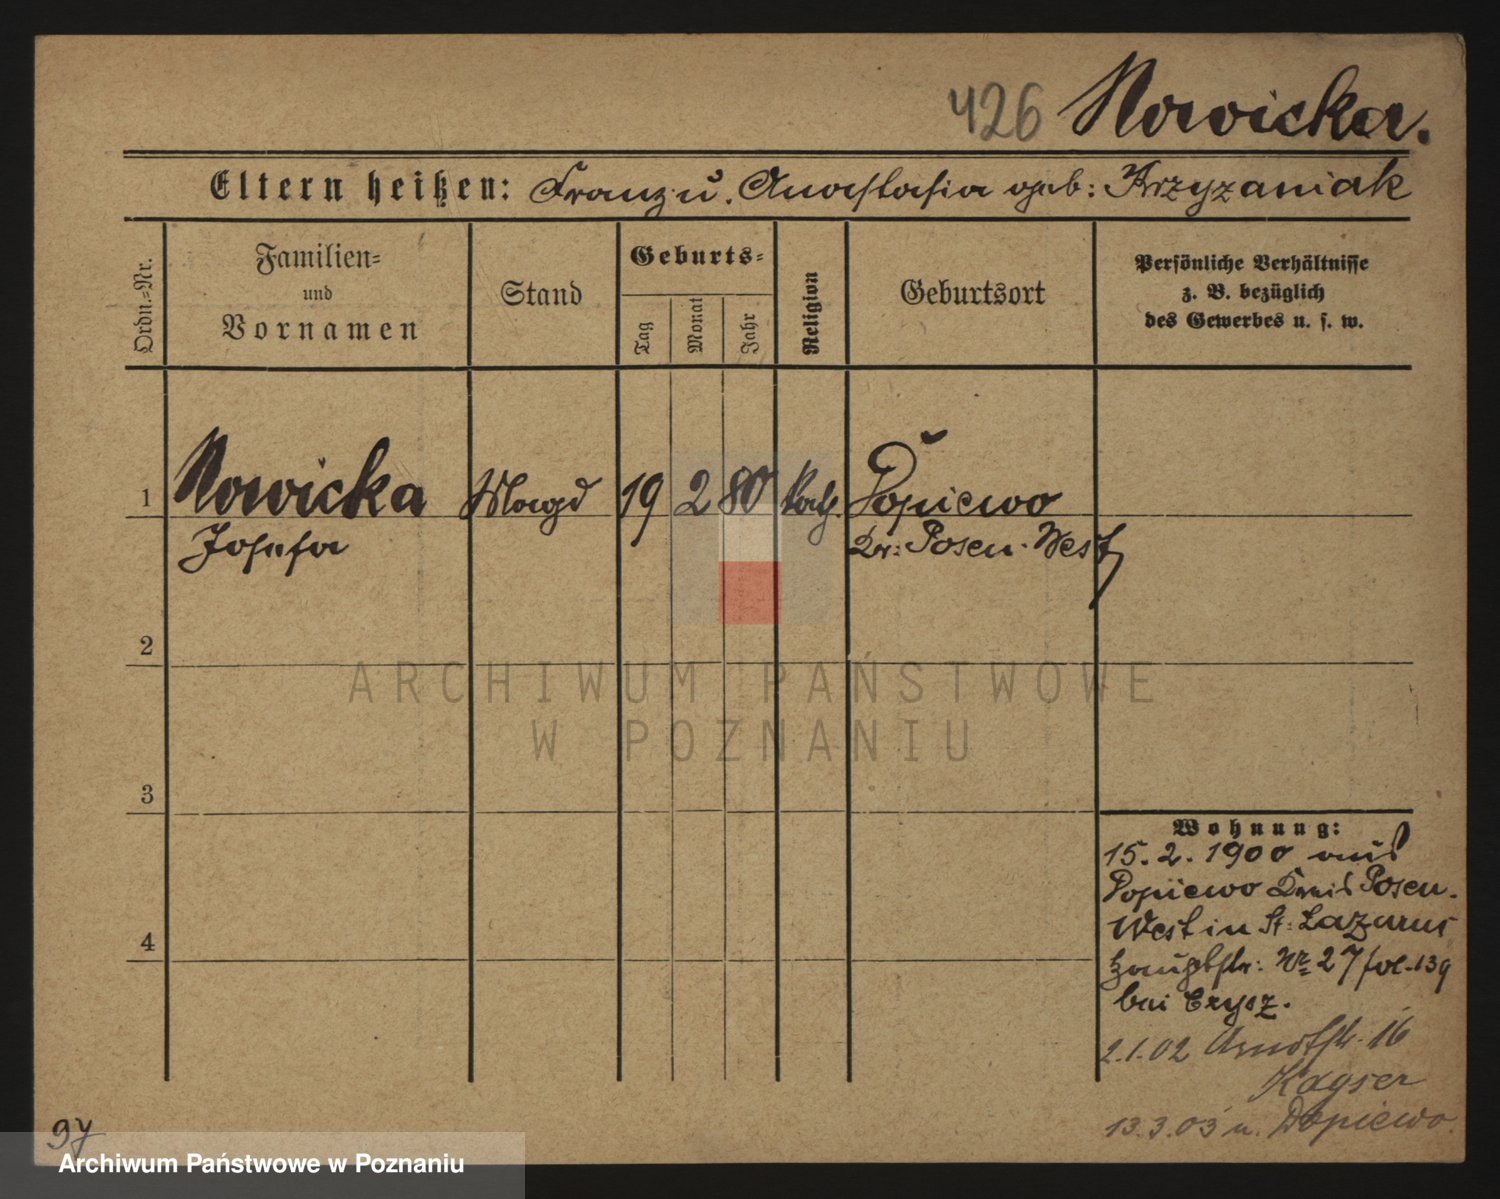 426 Nowicka.
Eltern heißen: Franz u. Anastasia geb: Krzyzaniak
Ordn.=Nr.
Familien=
und
Vornamen
Stand
Geburts=
Tag
Monat
Jahr
Religion
Geburtsort
Persönliche Verhältnisse
z. B. bezüglich
des Gewerbes u. s. w.
1 Nowicka Magd 19 2 80 kath. Popiewo
Josefa Kr: Posen-West
2
3
4
Wohnung:
15. 2. 1900 aus
Popiewo Kreis Posen-
West in St: Lazarus
Hauptstr: Nr 27 fol. 139
bei Czysz.
2.1.02 Arndtstr. 16
Kayser
13.3.03 n. Dopiewo.
97
ARCHIWUM PAŃSTWOWE
W POZNANIU
Archiwum Państwowe w Poznaniu